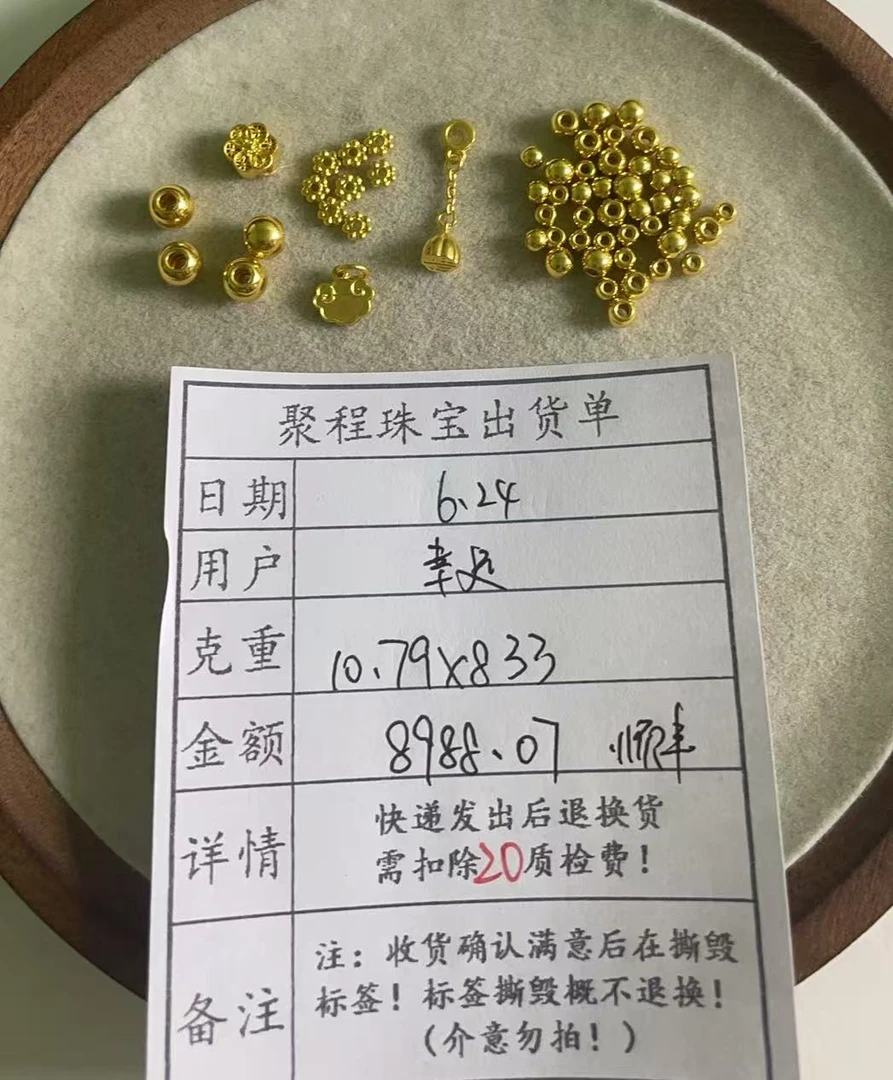 聚程珠宝出货单
日期 6.24
用户
克重 10.79x833
金额 8988.07 顺丰
详情 快递发出后退换货
需扣除20质检费！
备注 注：收货确认满意后在撕毁
标签！标签撕毁概不退换！
（介意勿拍！）